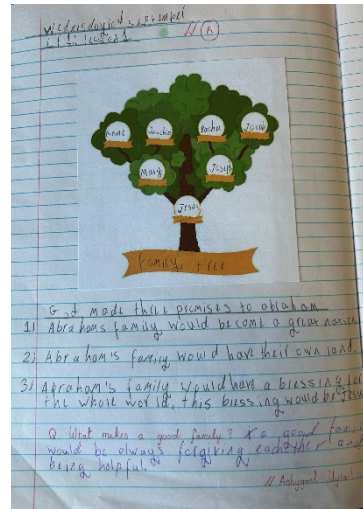 // A
Jacob
Rachel
Mary
Joseph
Jesus
Family tree
God made three promises to abraham
1) Abrahams family would become a great nation
2) Abraham's family would have their own land
3) Abraham's family would have a blessing for
the whole world, this blessing would be Jesus
Q. What makes a good family? a good family
would be always forgiving eachother and
being helpful.